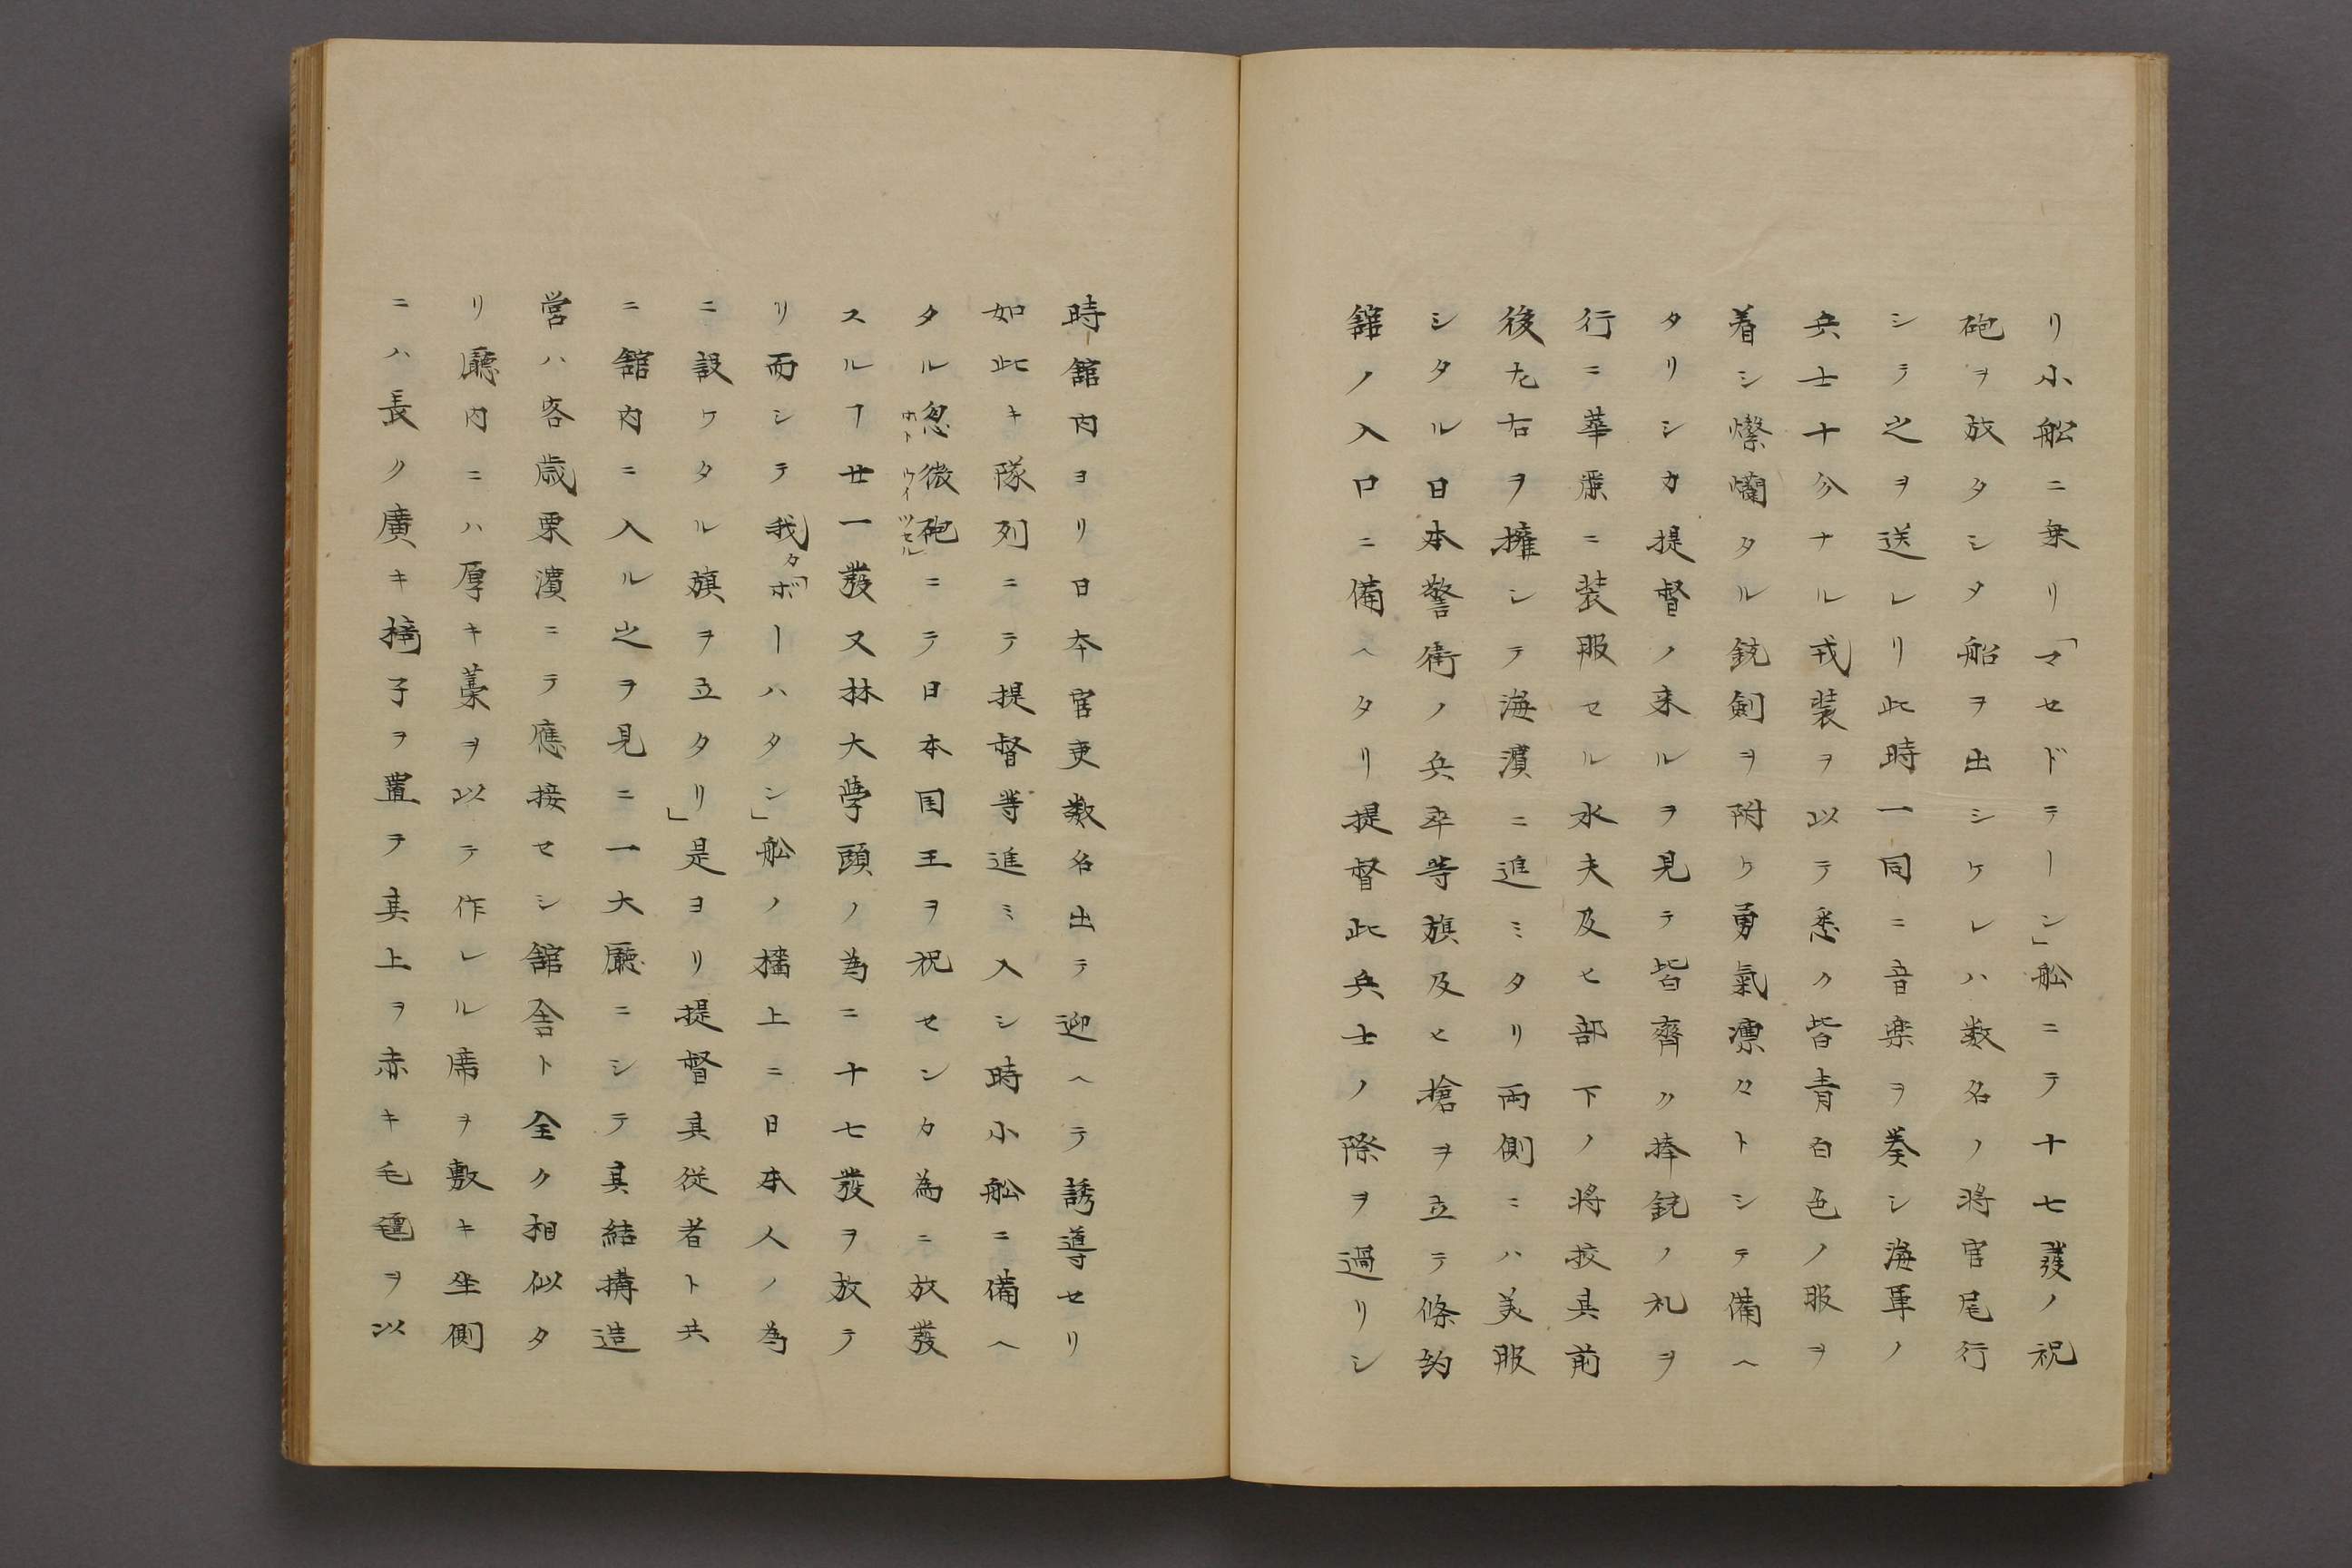 リ小舩ニ乗リ「マセドテーン」舩ニテ十七發ノ祝
砲ヲ放タシタ船ヲ出シケレハ数名ノ将官尾行
シテ之ヲ送レリ此時一同ニ音楽ヲ奏シ海軍ノ
兵士十分ナル戎装ヲ以テ悉ク皆青白色ノ服ヲ
着シ燦爛タル銃剣ヲ附ケ勇氣凛々トシテ備ヘ
タリシカ提督ノ来ルヲ見テ皆齊ク捧銃ノ礼ヲ
行ニ華麗ニ装服セル水夫及ヒ部下ノ将校其前
後左右ヲ擁シテ海濱ニ進ミタリ両側ニハ美服
シタル日本警衛ノ兵卒等旗及ヒ槍ヲ立テ條約
舘ノ入口ニ備ヘタリ提督此兵士ノ際ヲ過リシ
時舘内ヨリ日本官吏数名出テ迎ヘテ誘導セリ
如此キ隊列ニテ提督等進ミ入シ時小舩ニ備ヘ
タル忽微砲ニテ日本国王ヲ祝センカ為ニ放發
ホートウイツセル」
スルヿ廿一發又林大學頭ノ為ニ十七發ヲ放テ
リ而シテ我「タボーハタン」舩ノ檣上ニ日本人ノ為
ニ設ケタル旗ヲ立タリ」是ヨリ提督其従者ト共
ニ舘内ニ入ル之ヲ見ニ一大廳ニシテ其結搆造
営ハ客歳栗濱ニテ應接セシ舘舎ト全ク相似タ
リ廳内ニハ厚キ藁ヲ以テ作レル席ヲ敷キ坐側
ニハ長ク廣キ椅子ヲ置テ其上ヲ赤キ毛氊ヲ以